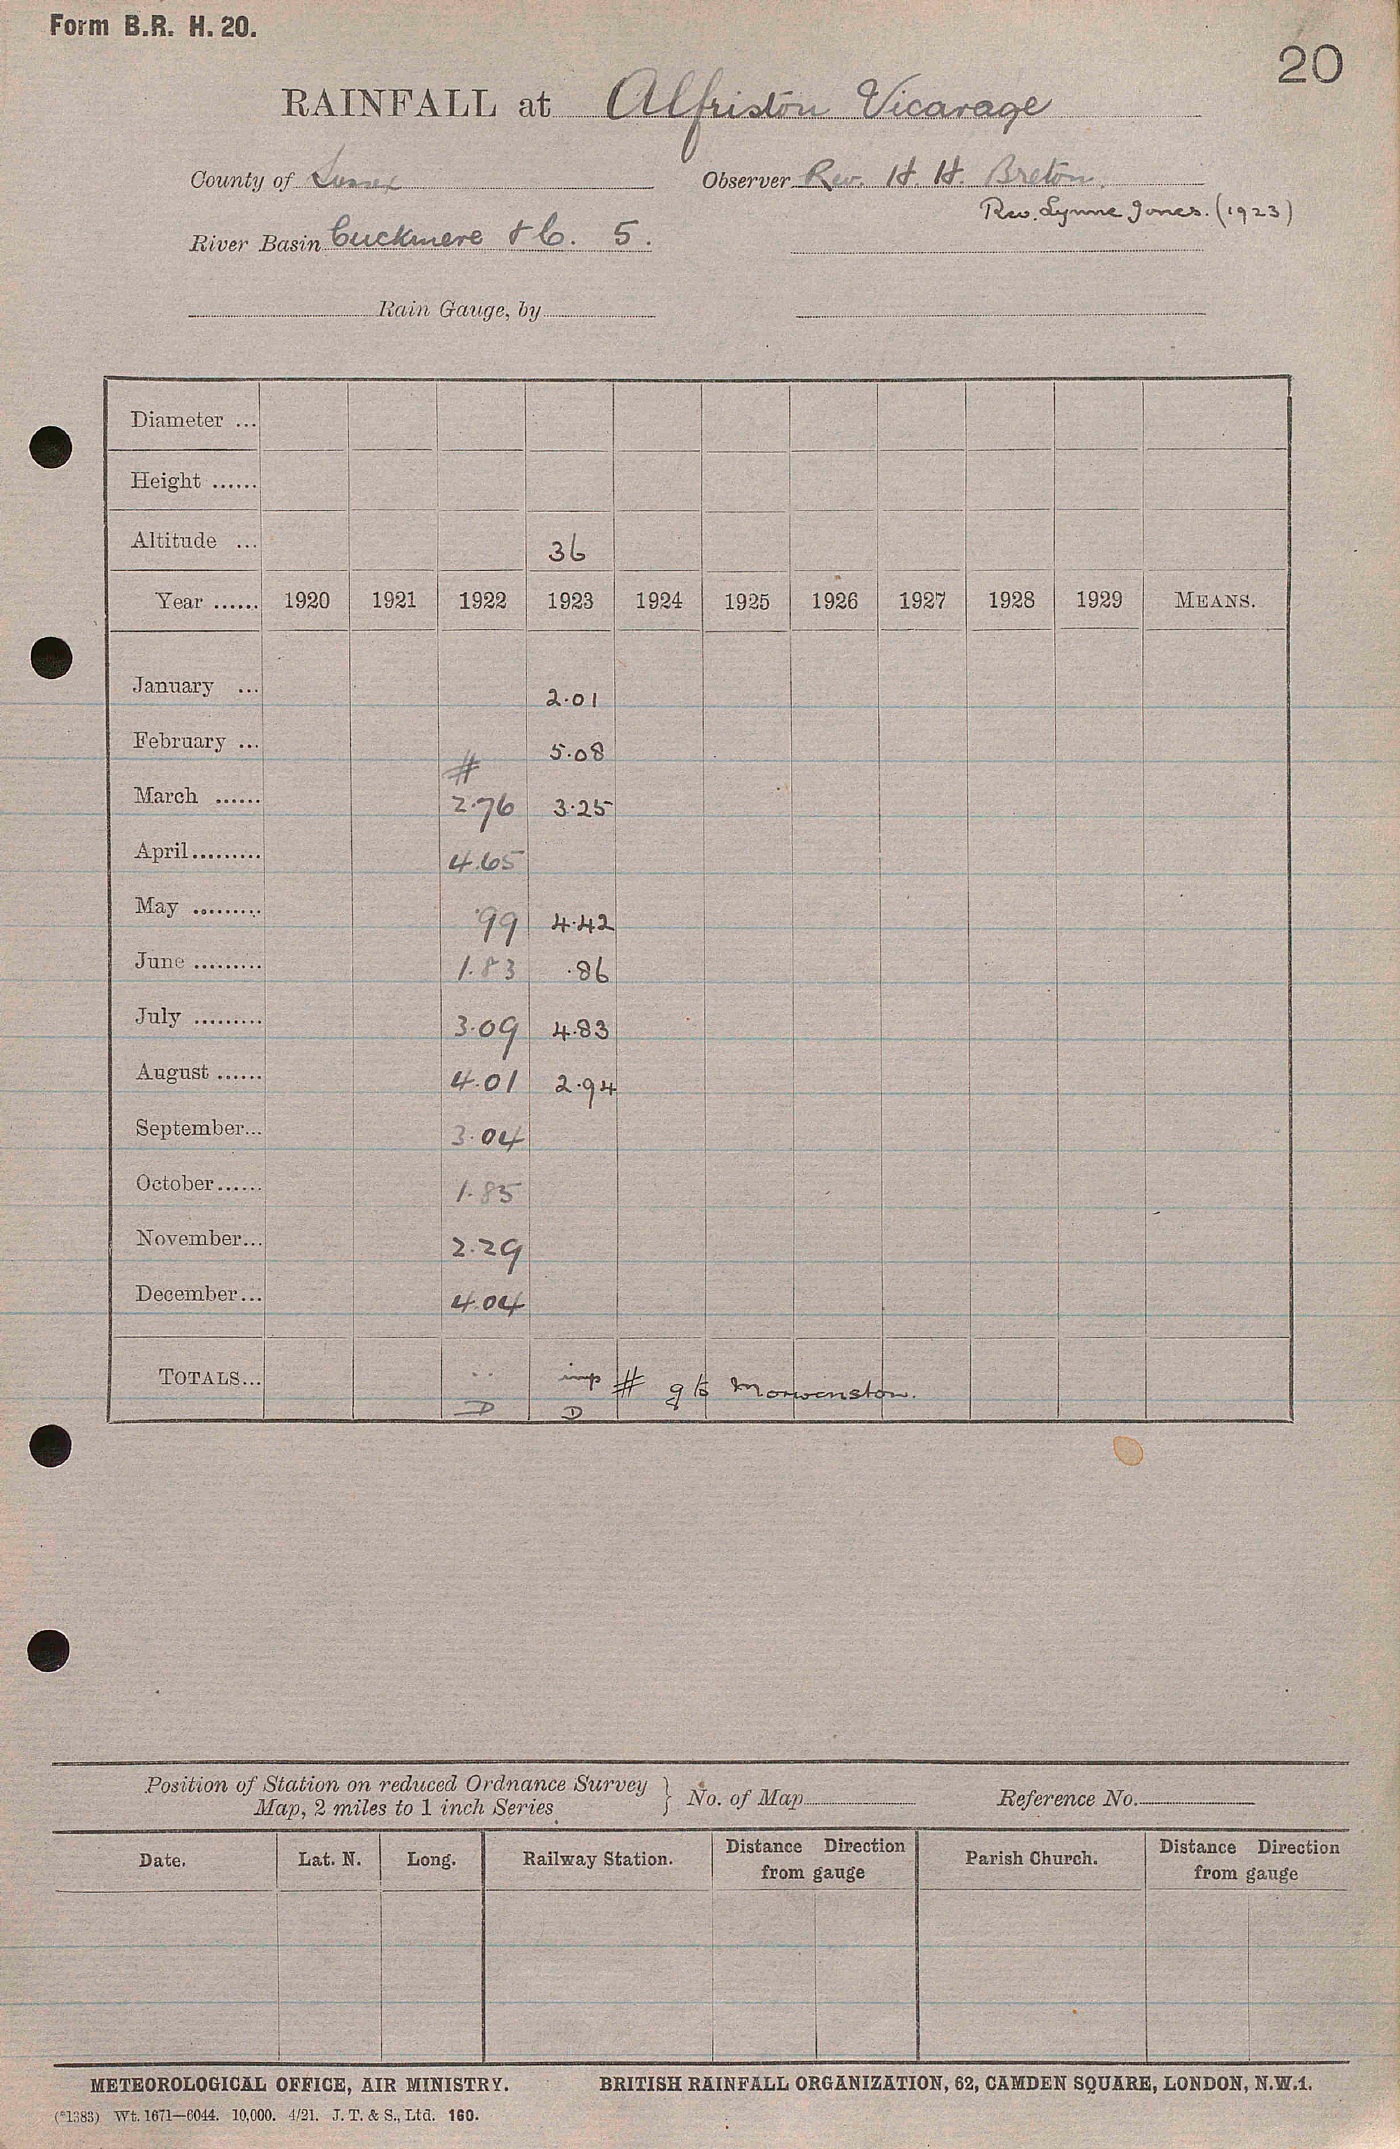 Form B.R. H. 20.
20
RAINFALL at Alfriston Vicarage
County of Sussex Observer Rev. H. H. Breton.
Rev. Lynne Jones. (1923)
River Basin Cuckmere & C. 5.
Rain Gauge, by
Diameter ...
Height ......
Altitude ... 36
Year ...... 1920 1921 1922 1923 1924 1925 1926 1927 1928 1929 MEANS.
January ... 2.01
February ... 5.08
#
March ...... 2.76 3.25
April......... 4.65
May ......... .99 4.42
June ......... 1.83 .86
July ......... 3.09 4.83
August ...... 4.01 2.94
September... 3.04
October...... 1.85
November... 2.29
December... 4.04
TOTALS... .. imp # g to Morwenston.
D D
Position of Station on reduced Ordnance Survey
Map, 2 miles to 1 inch Series } No. of Map Reference No.
Date. Lat. N. Long. Railway Station. Distance Direction from gauge Parish Church. Distance Direction from gauge
METEOROLOGICAL OFFICE, AIR MINISTRY. BRITISH RAINFALL ORGANIZATION, 62, CAMDEN SQUARE, LONDON, N.W.1.
(*1383) Wt. 1671—6044. 10,000. 4/21. J. T. & S., Ltd. 160.